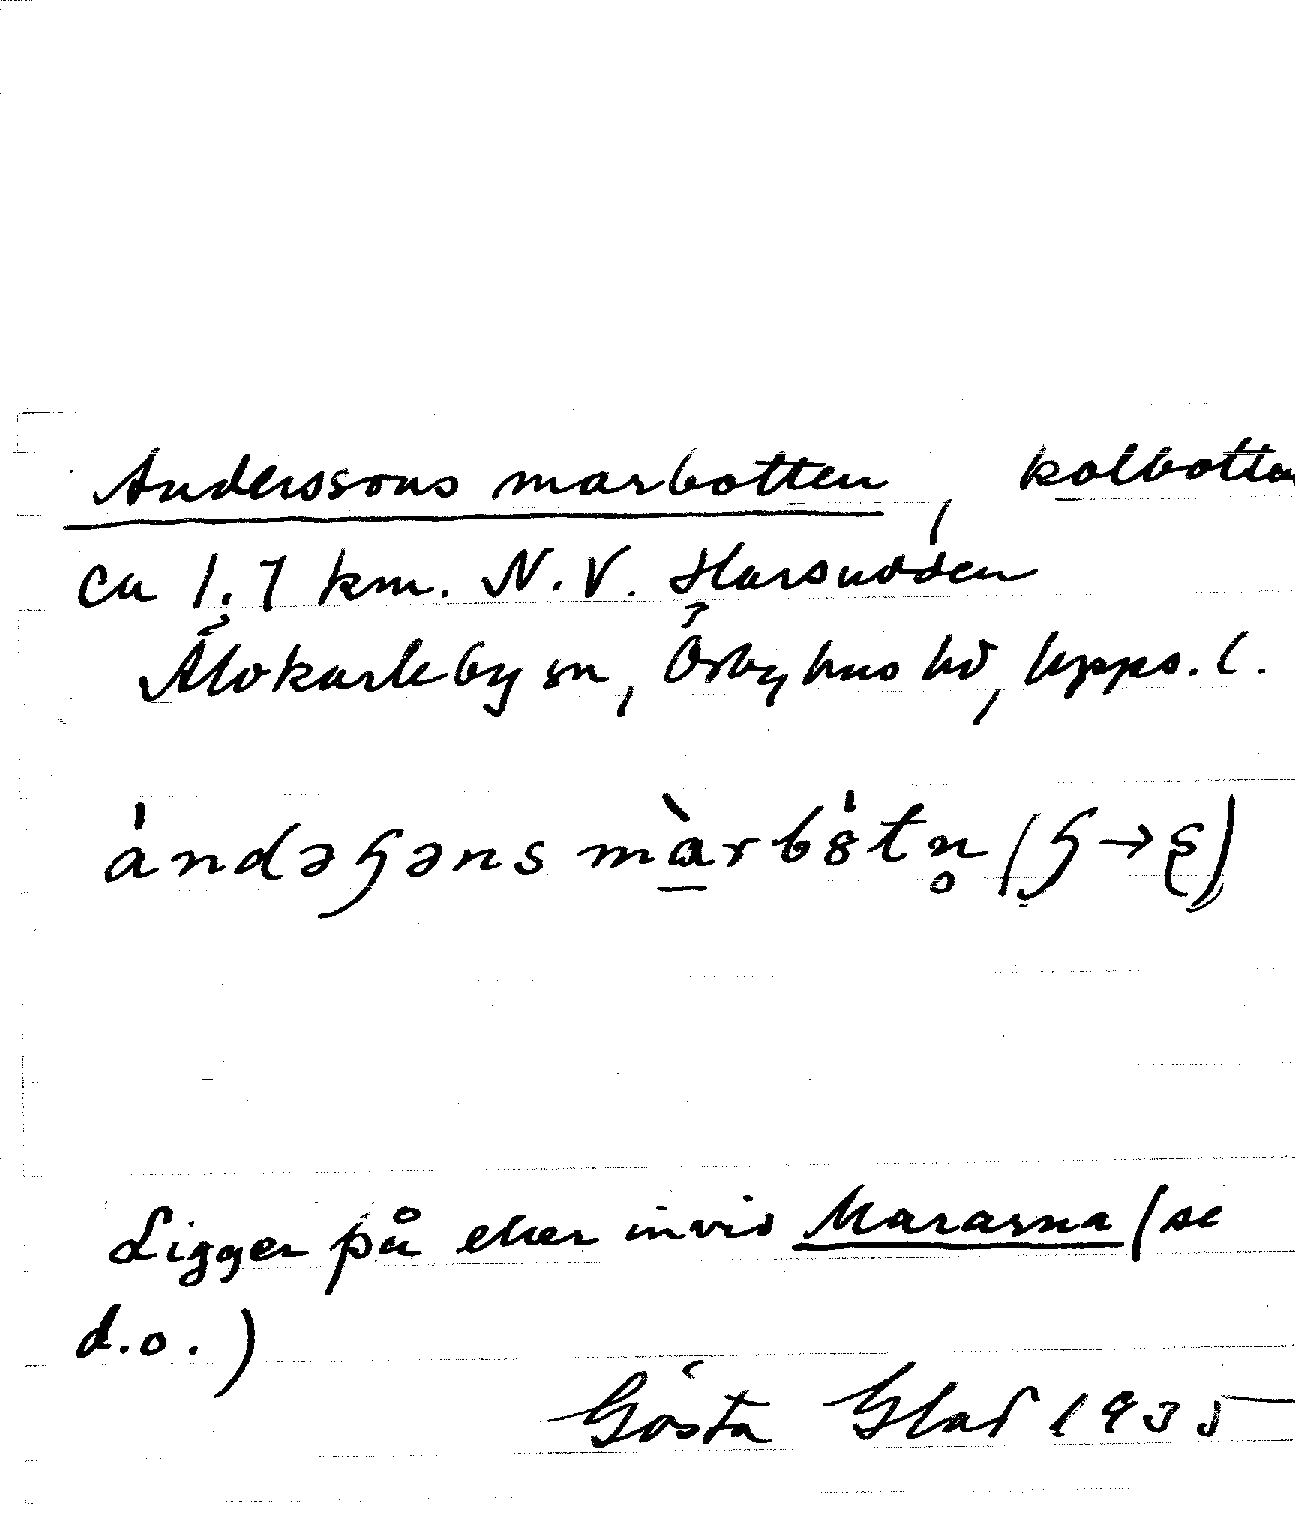 Anderssons marbotten, kolbotten
ca 1.7 km. N.V. Harsudden
Älvkarleby sn, Örbyhus hd, Upps. l.
ándəʂəns màrbòtn̥ (ʂ→ş)
Ligger på eller invid Mararna (se
d.o.)
Gösta Glad 1935